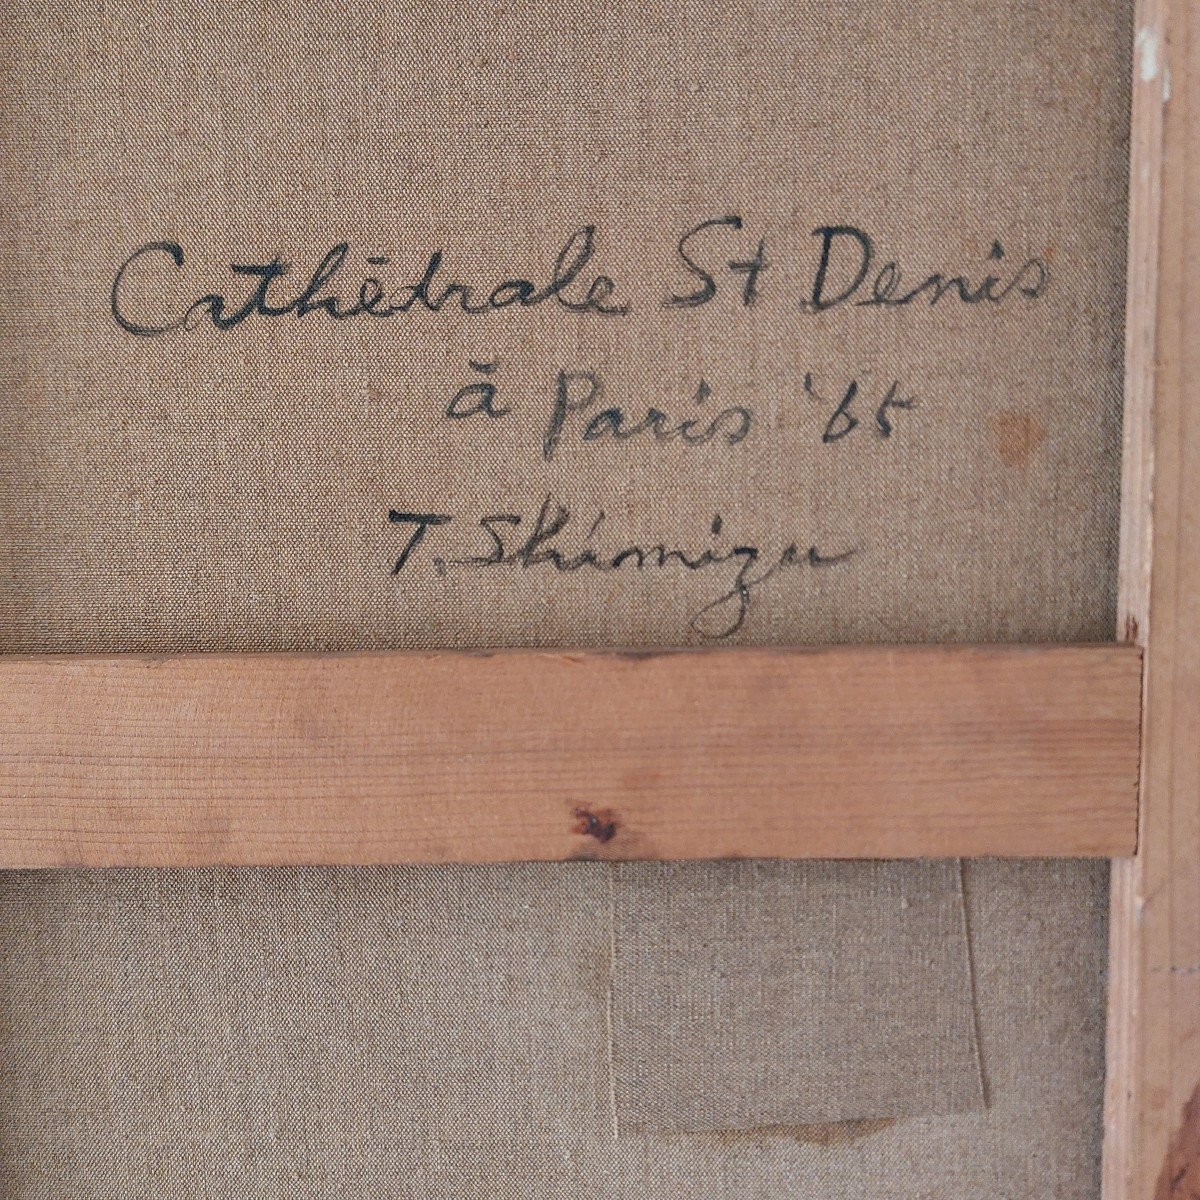 Cathédrale St Denis
à Paris '65
T. Shimizu